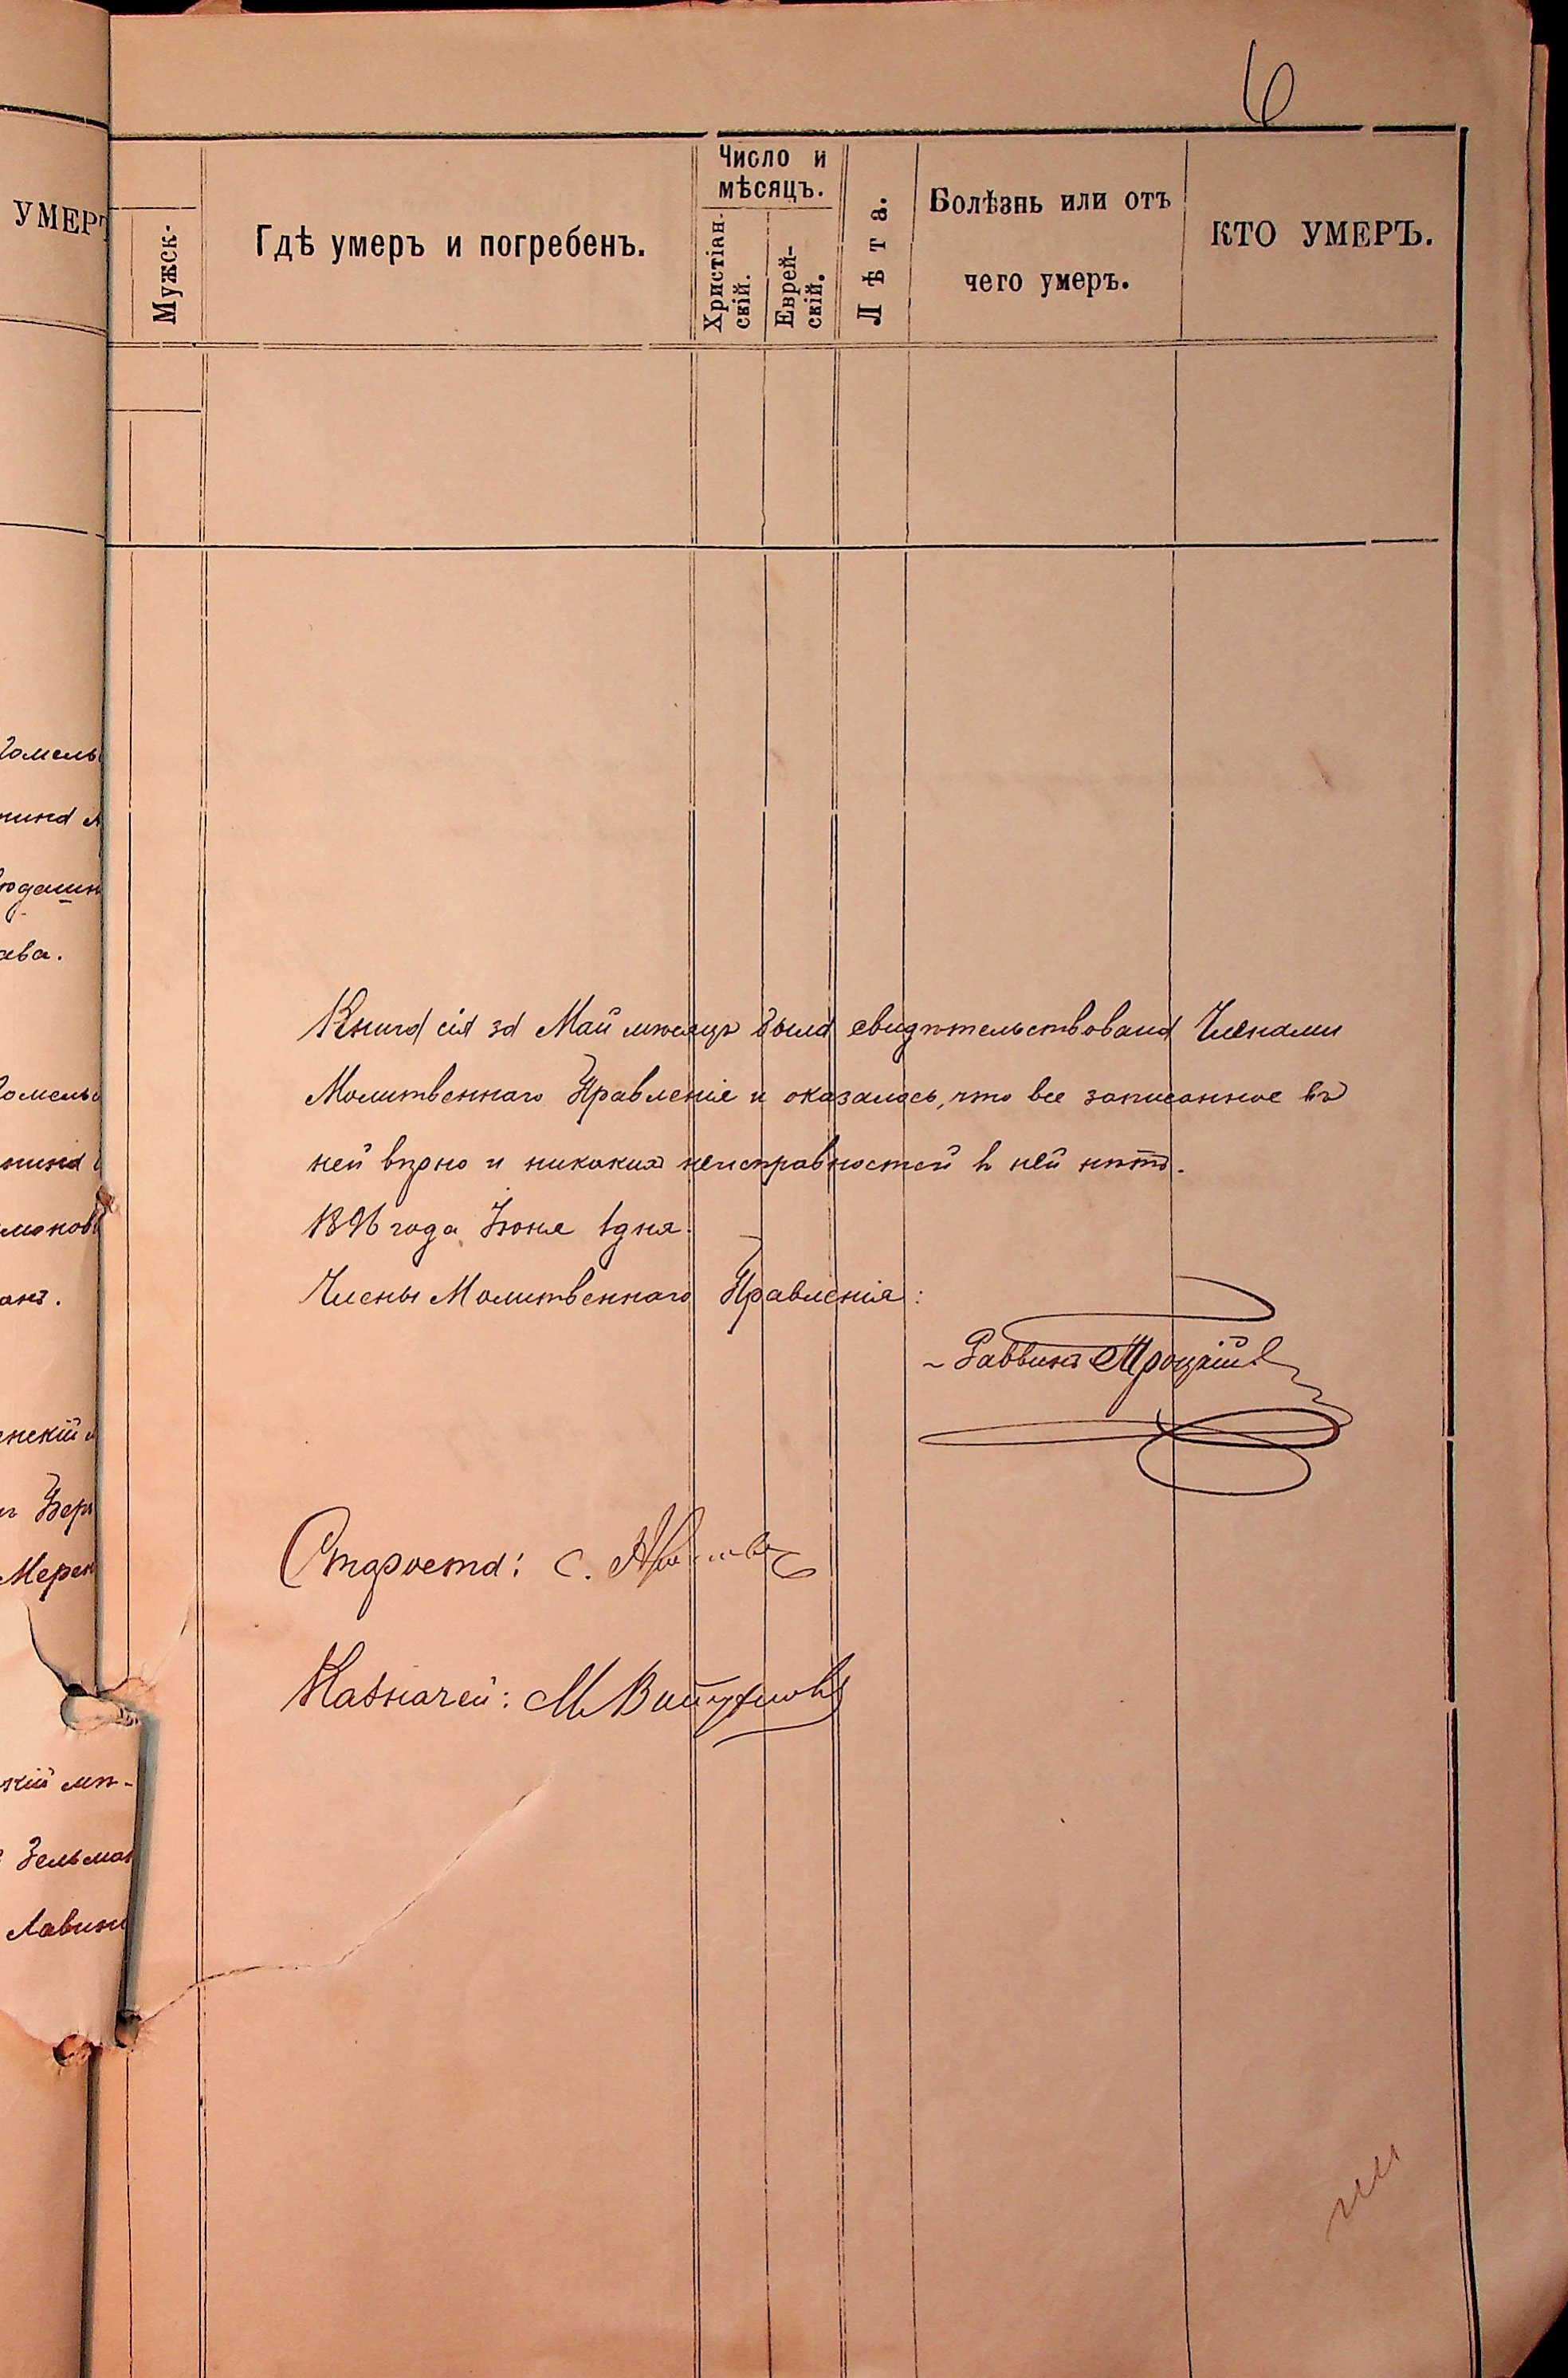 6
УМЕР
Мужск-
Гдѣ умеръ и погребенъ.
Число и
мѣсяцъ.
Христіан-
скій.
Еврей-
скій.
Лѣта.
Болѣзнь или отъ
чего умеръ.
КТО УМЕРЪ.
Гомель
ава.
Гомель
анъ.
енскій
Бер
Мерен
кій мѣ-
Зельман
Книга сія за Май мѣсяцъ была свидѣтельствована Членами
Молитвеннаго Правленіе и оказалось, что все записанное въ
ней вѣрно и никакихъ неисправностей в ней нѣтъ.
1896 года Іюня 1 дня.
Члены Молитвеннаго Правленія:
Раввинъ
Староста: С.
Казначей: М